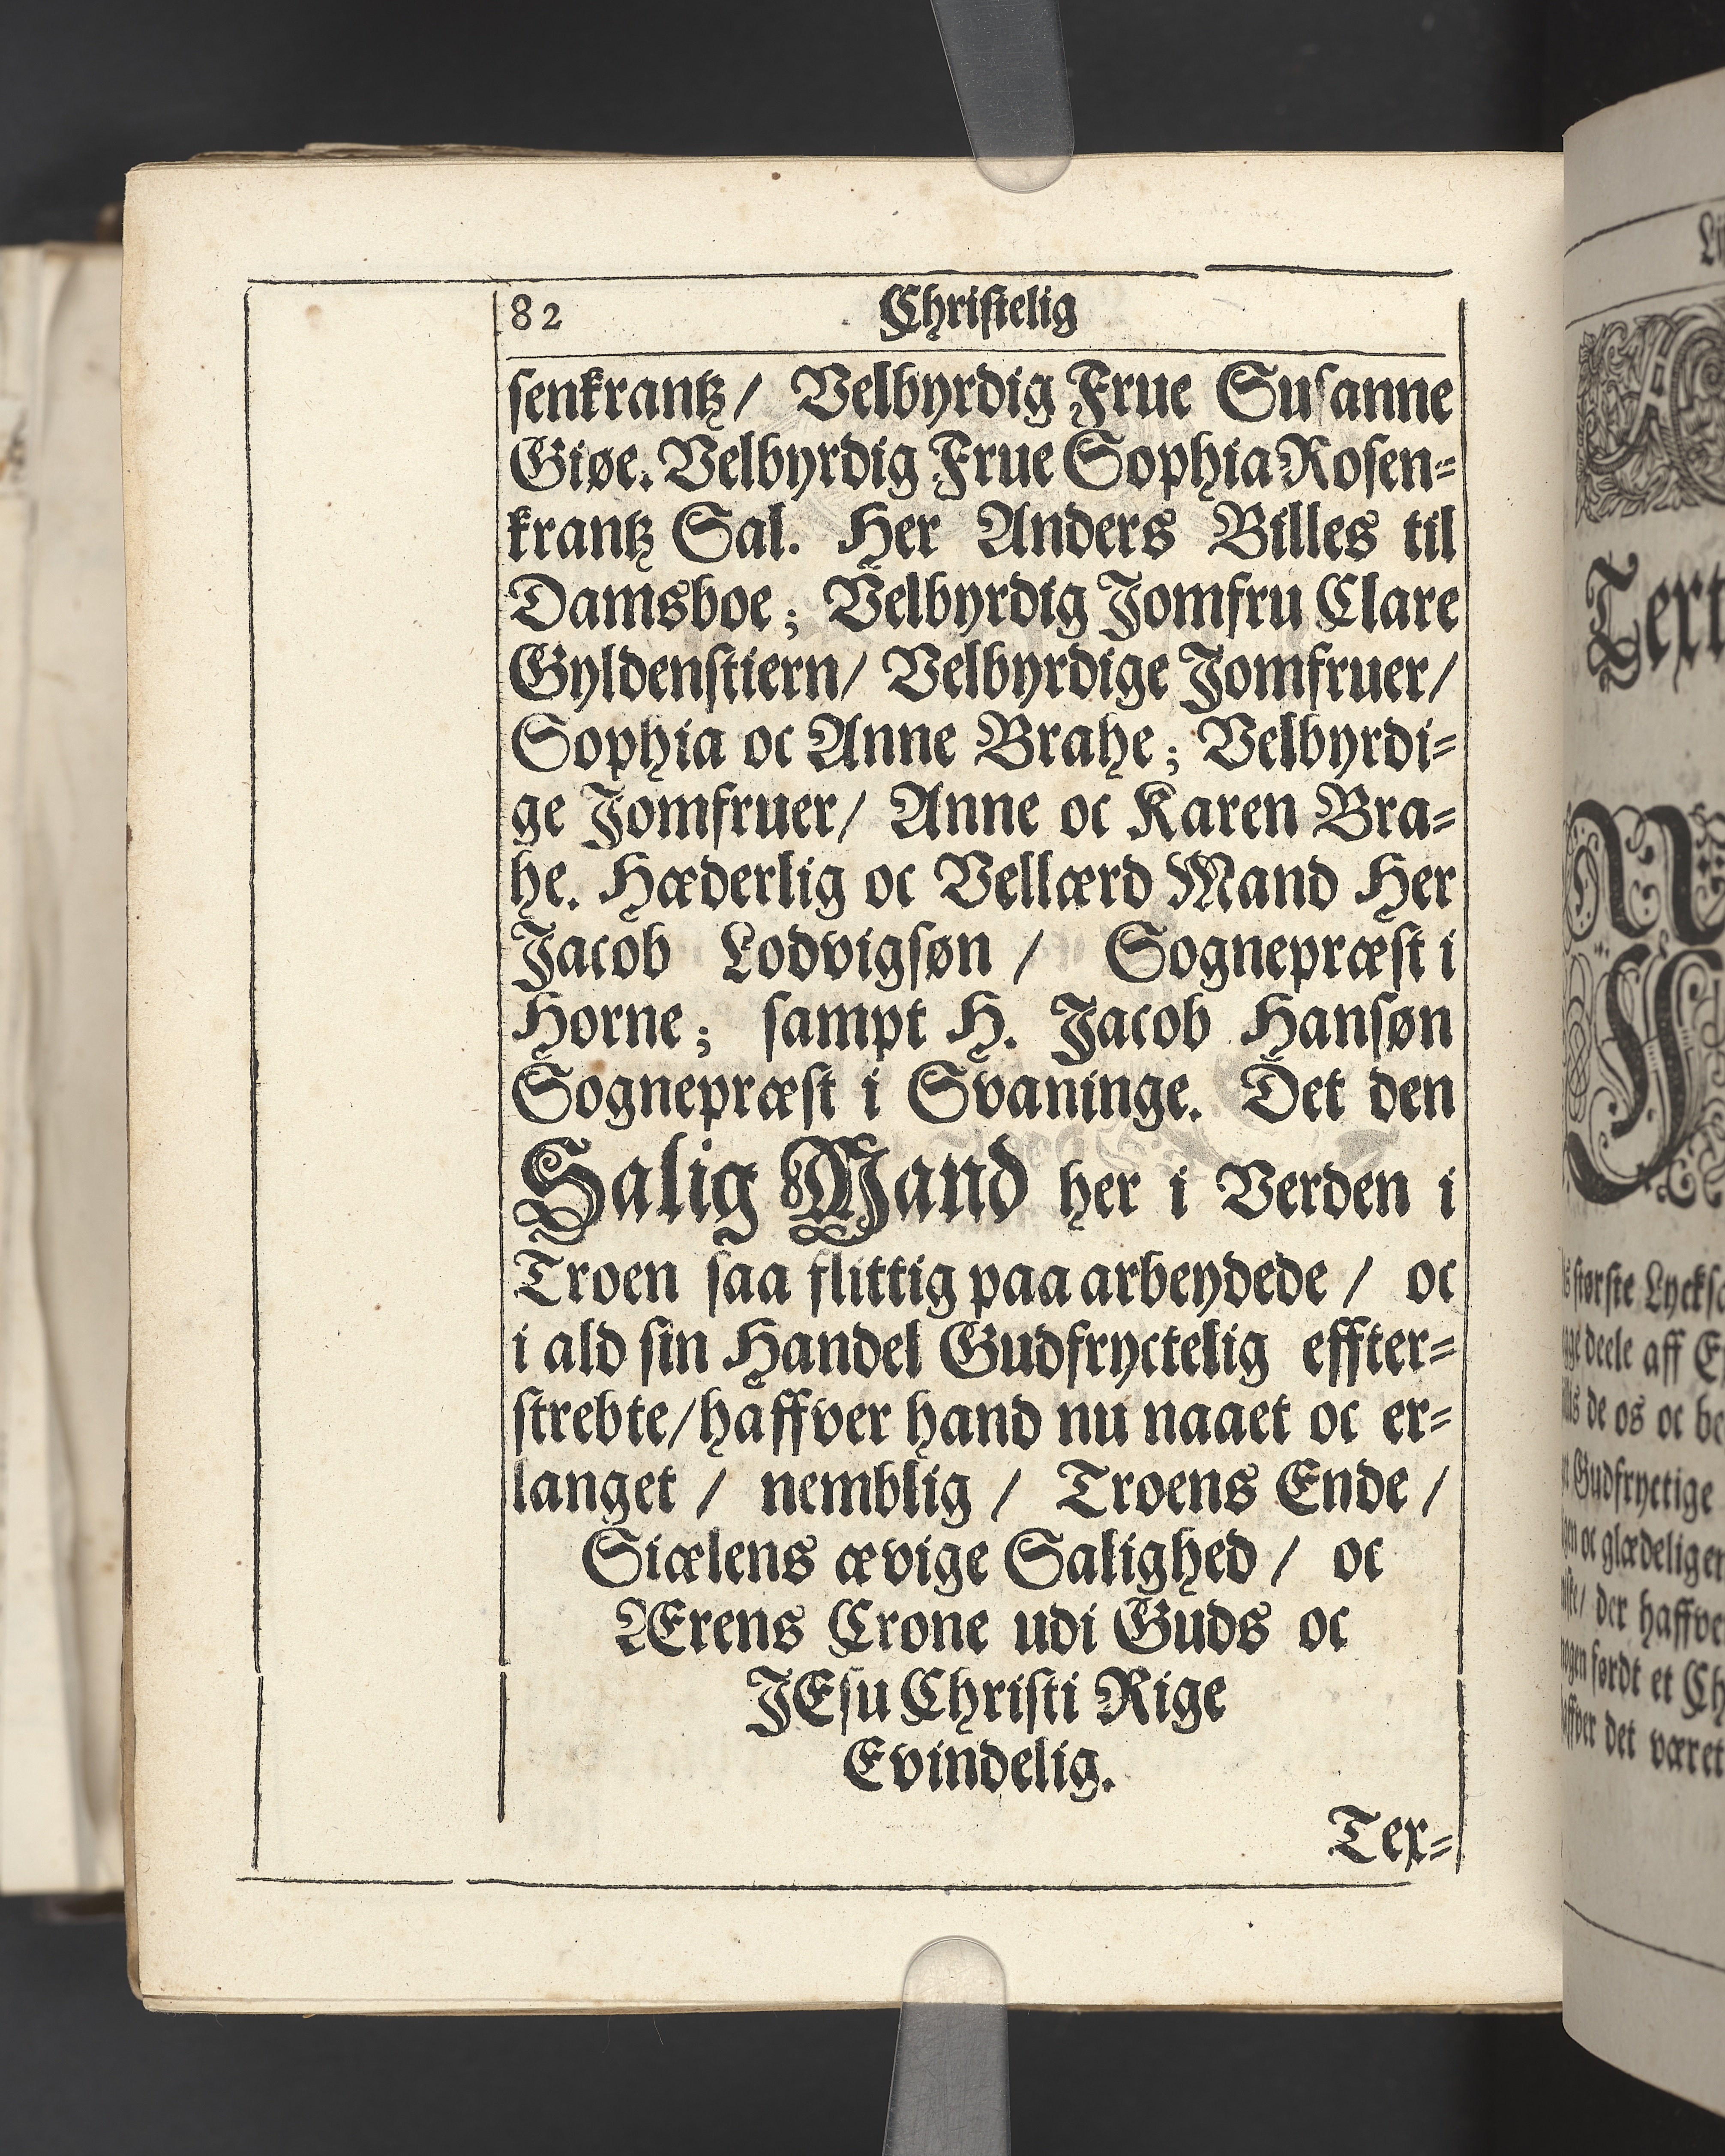 82 Christelig
senkrantz/ Velbyrdig Frue Susanne
Giøe. Velbyrdig Frue Sophia Rosen=
krantz Sal. Her Anders Billes til
Damsboe; Velbyrdig Jomfru Clare
Gyldenstiern/ Velbyrdige Jomfruer/
Sophia oc Anne Brahe; Velbyrdi=
ge Jomfruer/ Anne oc Karen Bra=
he. Hæderlig oc Vellærd Mand Her
Jacob Lodvigsøn / Sognepræst i
Horne; sampt H. Jacob Hansøn
Sognepræst i Svaninge. Det den
Salig Mand her i Verden i
Troen saa flittig paa arbeydede / oc
i ald sin Handel Gudfryctelig effter=
strebte/haffver hand nu naaet oc er=
langet / nemblig / Troens Ende /
Siælens ævige Salighed / oc
Ærens Crone udi Guds oc
JEsu Christi Rige
Evindelig.
Tex=
Text
største
deele aff
de os oc
Gudfryctige
oc glædelig
der
et
det været